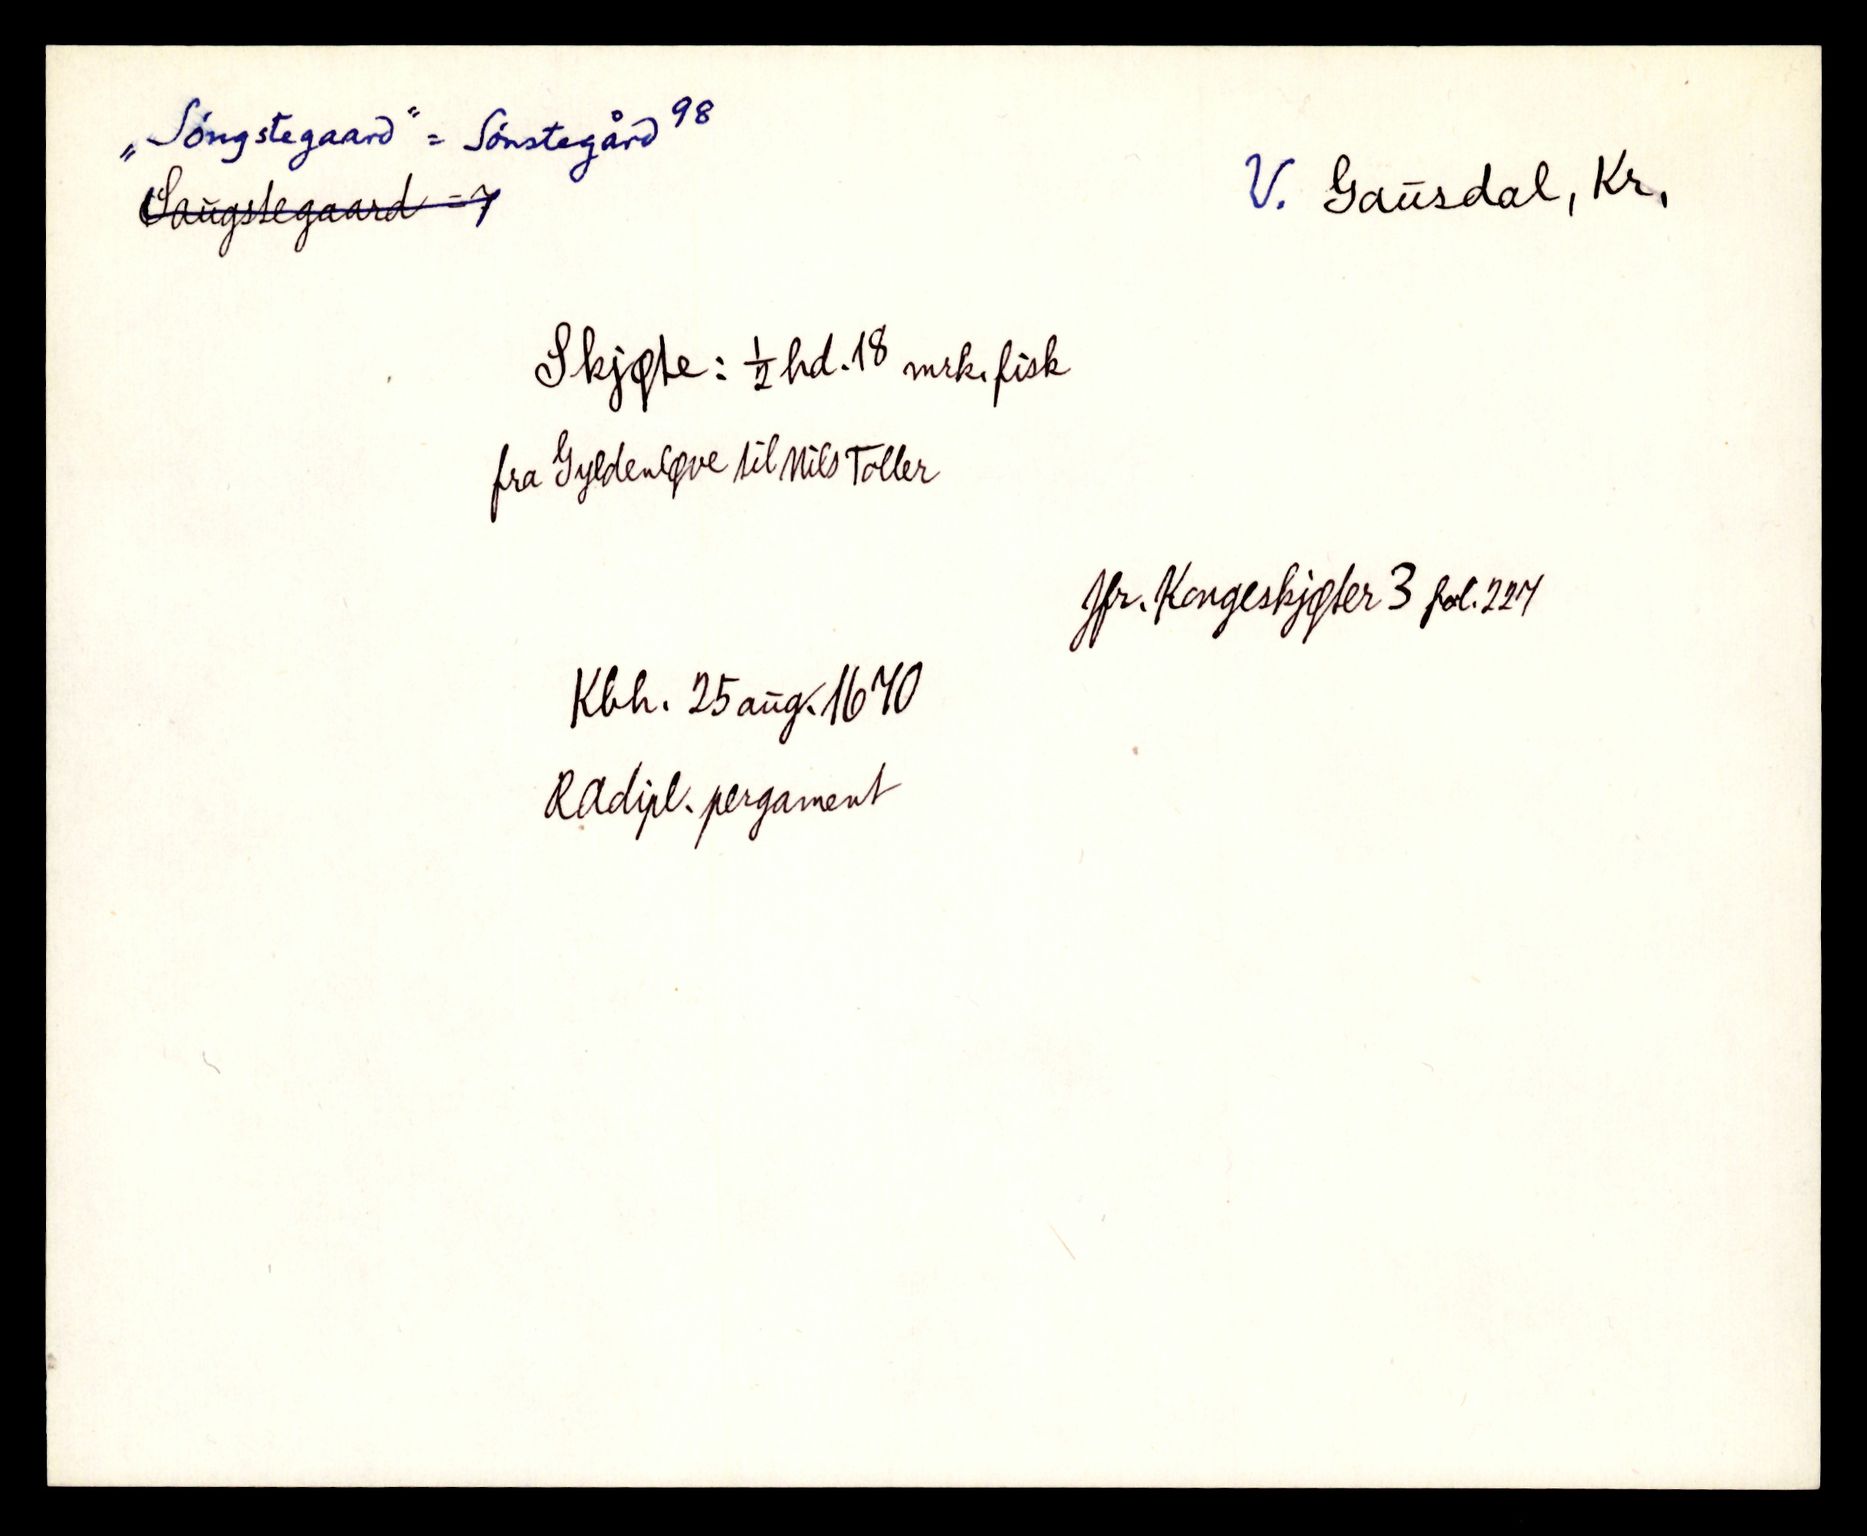 „Söngstegaard“ = Sönstegård 98
Saugstegaard = 7
V. Gausdal, Kr.
Skjøte: ½ hd. 18 mrk. fisk
fra Gyldenløve til Nils Toller
Jfr. Kongeskjøter 3 fol. 227
Kbh. 25 aug. 1670
RA dipl. pergament